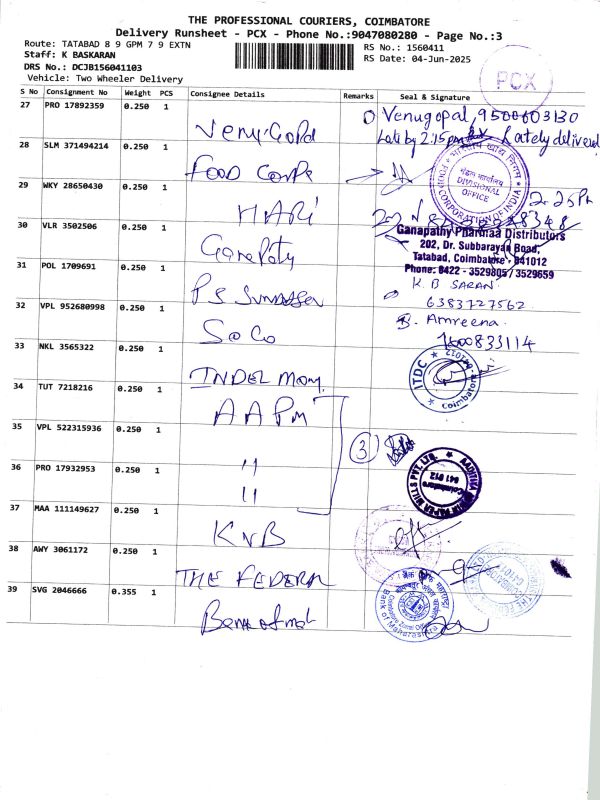 THE PROFESSIONAL COURIERS, COIMBATORE
Delivery Runsheet - PCX - Phone No.:9047080280 - Page No.:3
Route: TATABAD 8 9 GPM 7 9 EXTN
RS No.: 1560411
Staff: K BASKARAN
RS Date: 04-Jun-2025
DRS No.: DCJB156041103
Vehicle: Two Wheeler Delivery
PCX
S No Consignment No Weight PCS Consignee Details Remarks Seal & Signature
27 PRO 17892359 0.250 1
Venugopal, 9500603130
Late by 2:15pm lately delivered
28 SLM 371494214 0.250 1 Food Corp
DIVISIONAL OFFICE
CORPORATION OF INDIA
29 WKY 28650430 0.250 1 HARi
2.25PM
30 VLR 3502506 0.250 1 Ganapaty
Ganapathy Pharmaa Distributors
202, Dr. Subbarayan Road,
Tatabad, Coimbatore - 641012
Phone: 0422 - 3529805 / 3529659
31 POL 1709691 0.250 1 PS
K. B SARAN
6383727562
32 VPL 952680998 0.250 1 SoCo
B. Amreena.
33 NKL 3565322 0.250 1 INDEL Mony
ITDC
Coimbatore
34 TUT 7218216 0.250 1 AAPM
35 VPL 522315936 0.250 1 "
3
36 PRO 17932953 0.250 1 "
AADITHA PAPER MILLS PVT. LTD.
Coimbatore
641 012
37 MAA 111149627 0.250 1 KVB
38 AWY 3061172 0.250 1 THE FEDERAL
39 SVG 2046666 0.355 1 Bank of mah
Bank of Maharashtra
Coimbatore Zonal Office